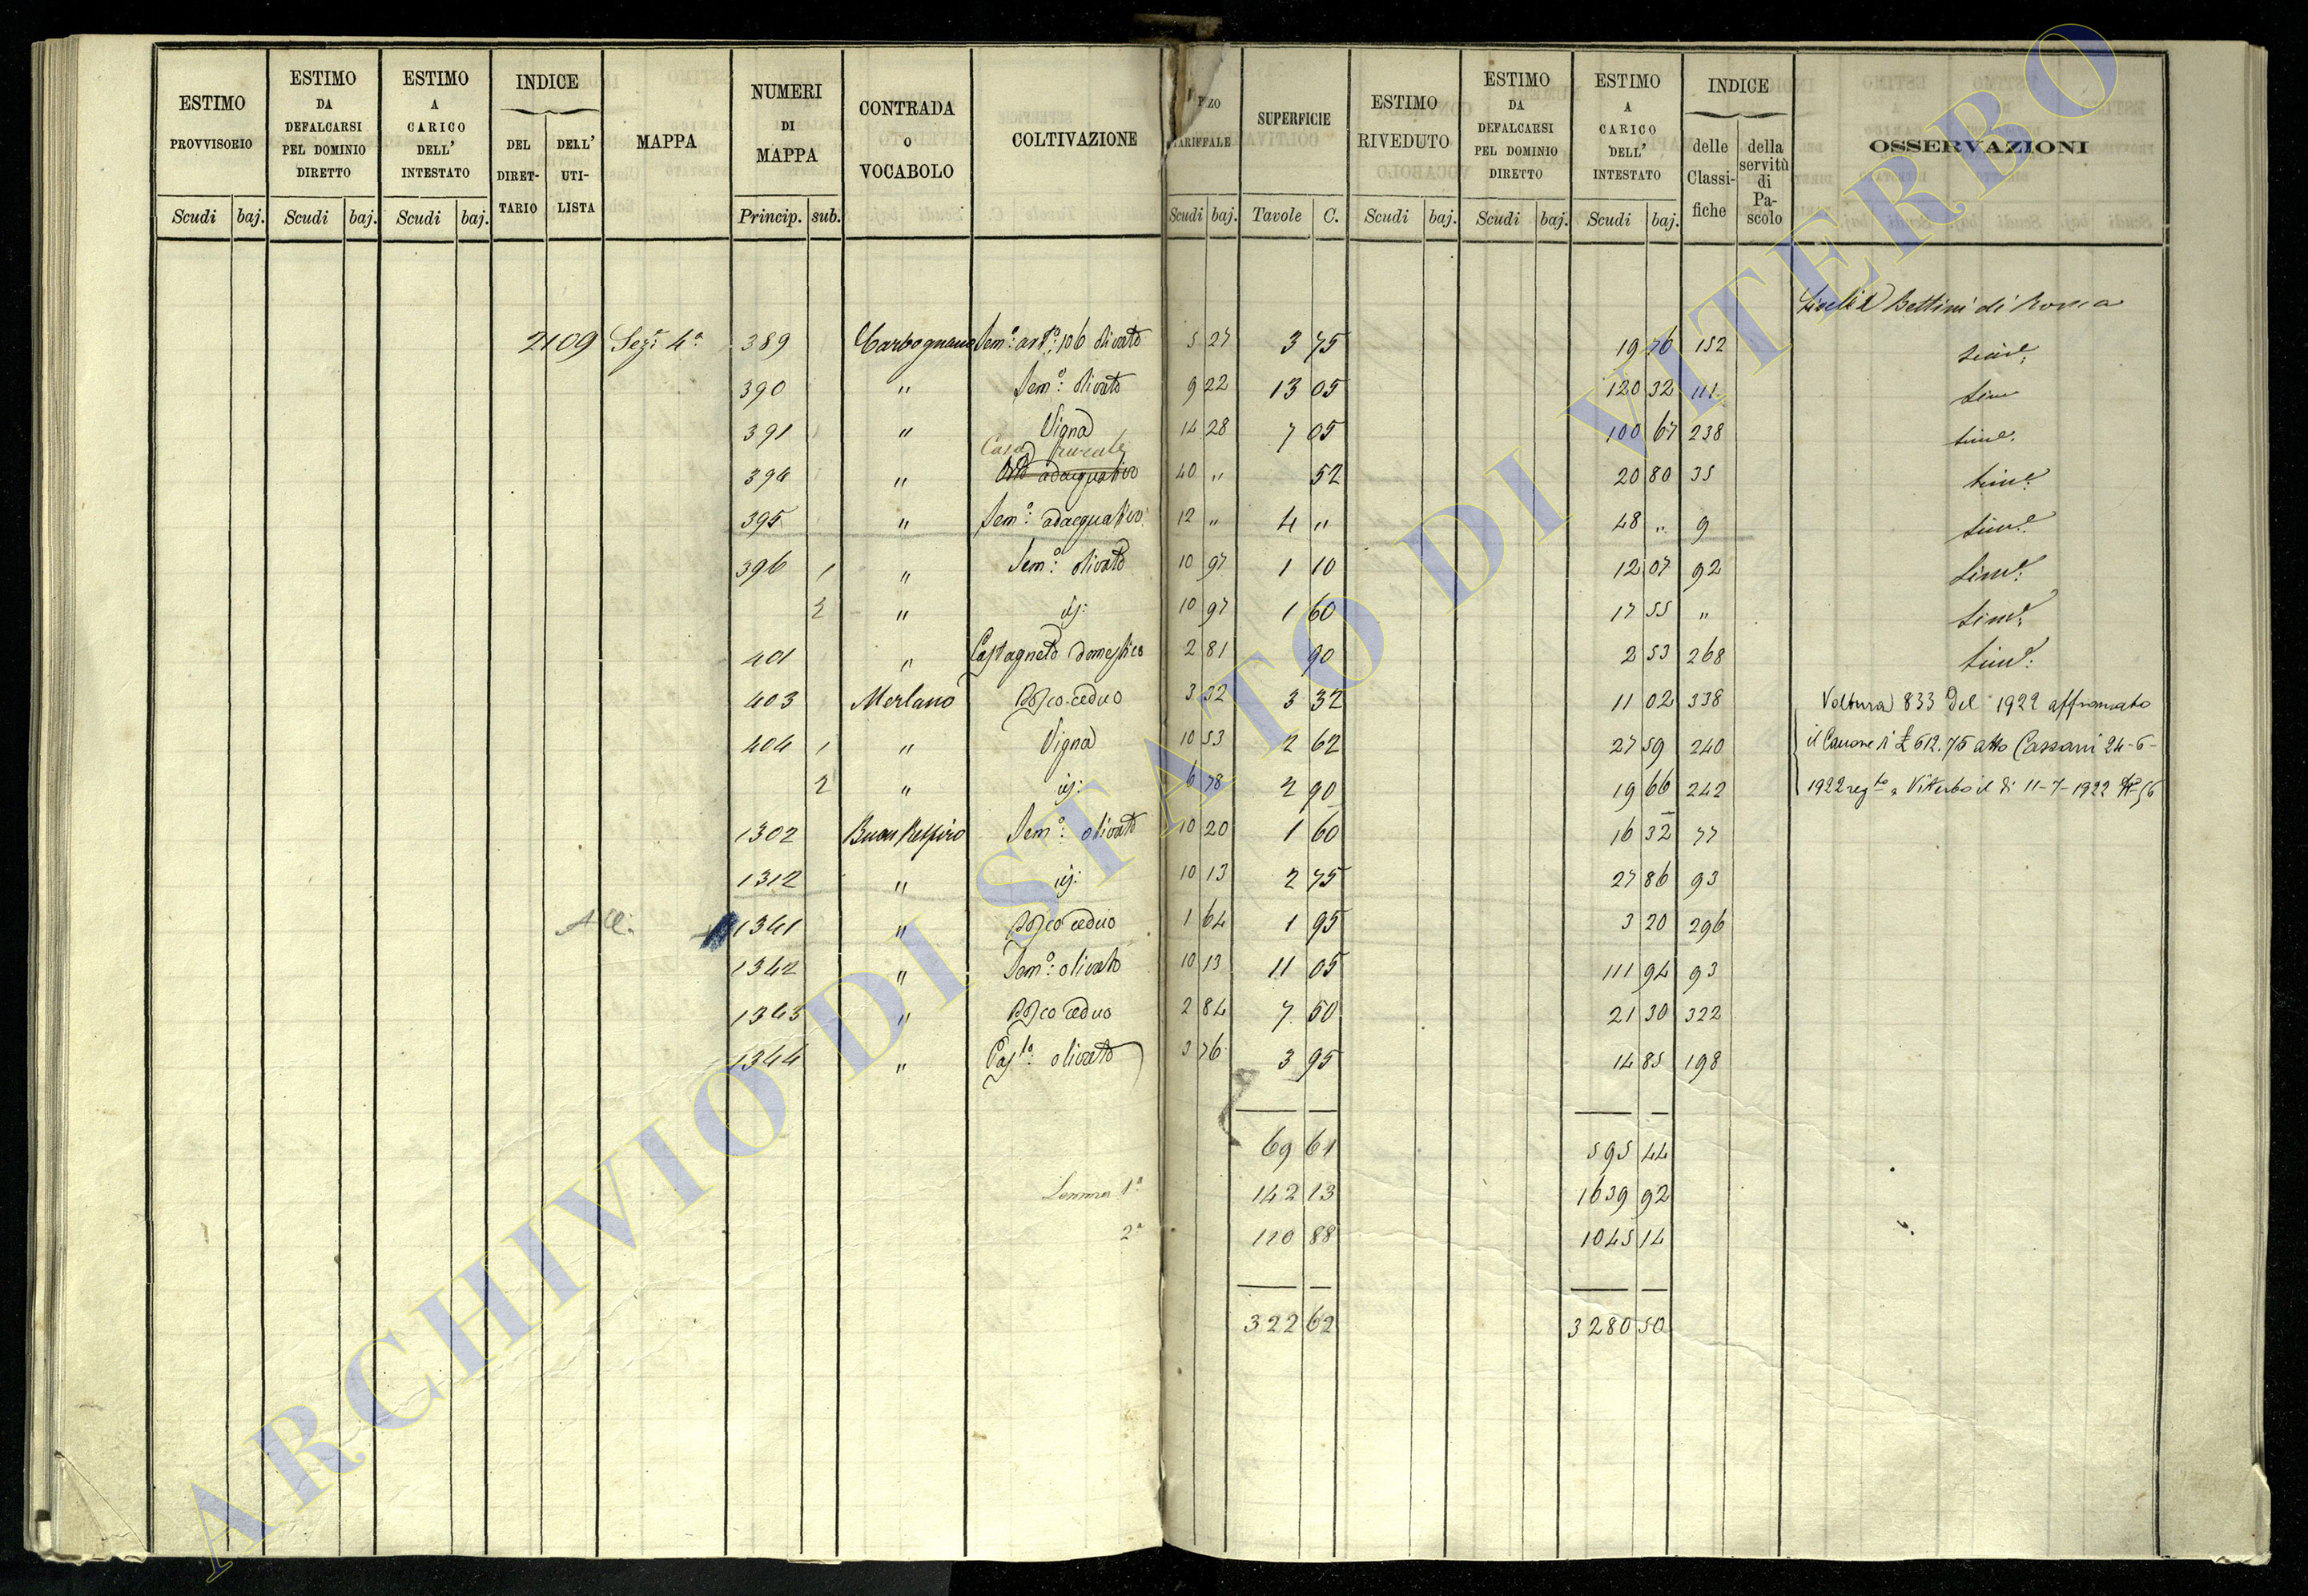 ESTIMO PROVVISORIO
ESTIMO DA DEFALCARSI PEL DOMINIO DIRETTO
ESTIMO A CARICO DELL' INTESTATO
INDICE
DEL DIRET-TARIO
DELL' UTI-LISTA
MAPPA
NUMERI DI MAPPA
CONTRADA O VOCABOLO
COLTIVAZIONE
TARIFFALE
SUPERFICIE
ESTIMO RIVEDUTO
ESTIMO DA DEFALCARSI PEL DOMINIO DIRETTO
ESTIMO A CARICO DELL' INTESTATO
INDICE
delle Classi-fiche
della servitù di Pa-scolo
OSSERVAZIONI
Scudi baj. Scudi baj. Scudi baj. Princip. sub. Scudi baj. Tavole C. Scudi baj. Scudi baj. Scudi baj.
Bettini di Roma
2109 Sezˢ 4ª 389 Carbognano Semº: 106 olivato 5 27 3 75 19 76 152 sime:
390 " Semº: olivato 9 22 13 05 120 32 111 sime
391 " Vigna 14 28 7 05 100 67 238 sime:
Casa rurale
394 " Orto adacquativo 40 " 52 20 80 35 sime:
395 " Semº: adacquativo 12 " 4 " 48 " 9 sime:
396 1 " Semº: olivato 10 97 1 10 12 07 92 sime:
2 " id: 10 97 1 60 17 55 " sime:
401 " Castagneto domestico 2 81 90 2 53 268 sime:
403 Merlano Bosco ceduo 3 32 3 32 11 02 338 Voltura 833 del 1922 affrancato
404 1 " Vigna 10 53 2 62 27 59 240 il Canone di £ 612.75 atto Cassani 24-6-
2 " id: 6 78 2 90 19 66 242 1922 regto a Viterbo il di 11-7-1922 Nº 56
1302 Buon Respiro Semº: olivato 10 20 1 60 16 32 77
1312 " id: 10 13 2 75 27 86 93
1341 " Bosco ceduo 1 64 1 95 3 20 296
1342 " Semº: olivato 10 13 11 05 111 94 93
1343 " Bosco ceduo 2 84 7 50 21 30 322
1344 " Pasº: olivato 3 76 3 95 14 85 198
69 61 595 44
Somma 1ª 142 13 1639 92
2ª 110 88 1045 14
322 62 3280 50
ARCHIVIO DI STATO DI VITERBO